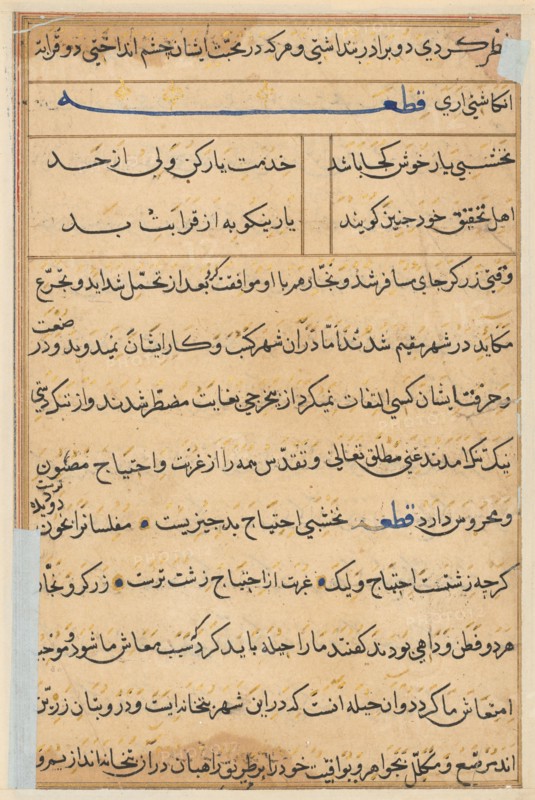 نظر کردی دو برادر پنداشتی و هر که در محبت ایشان چشم انداختی دو قرابه
انکاشتی اری قطعه
نخشبی یار خوش کجا باشد خدمت یار کن ولی از حد
اهل تحقیق خود چنین کویند یار نیکو به از قرابت بد
وقتی زرکر جای مسافر شد و نجار هم با او موافقت کرد بعد از تحمل شداید و تجرع
مکاید در شهر مقیم شدند اما در ان شهر کسب و کار ایشان نمیدوید و در صنعت
و حرفت ایشان کسی التفات نمیکرد از بیخرجی بغایت مضطر شدند و از تنکدستی
نیک تنک امدند غنی مطلق تعالی و تقدس همه را از غربت و احتیاج مصئون
و محروس دارد قطعه نخشبی احتیاج بد چیزیست مفلسانرا بخون
تردیده
کرچه زشتست احتیاج ولیک غربت از احتیاج زشت ترست زرکر و نجار
هر دو فطن و داهی بودند کفتند ما را حیله باید کرد که سبب معاش ما شود و موجب
انتعاش ما کردد و ان حیله انست که در این شهر بتخانه ایست و در و بتان زرین
اند مرصع و مکلل بجواهر و یواقیت خود را بر طریق راهبان در آن بتخانه اندازیم و